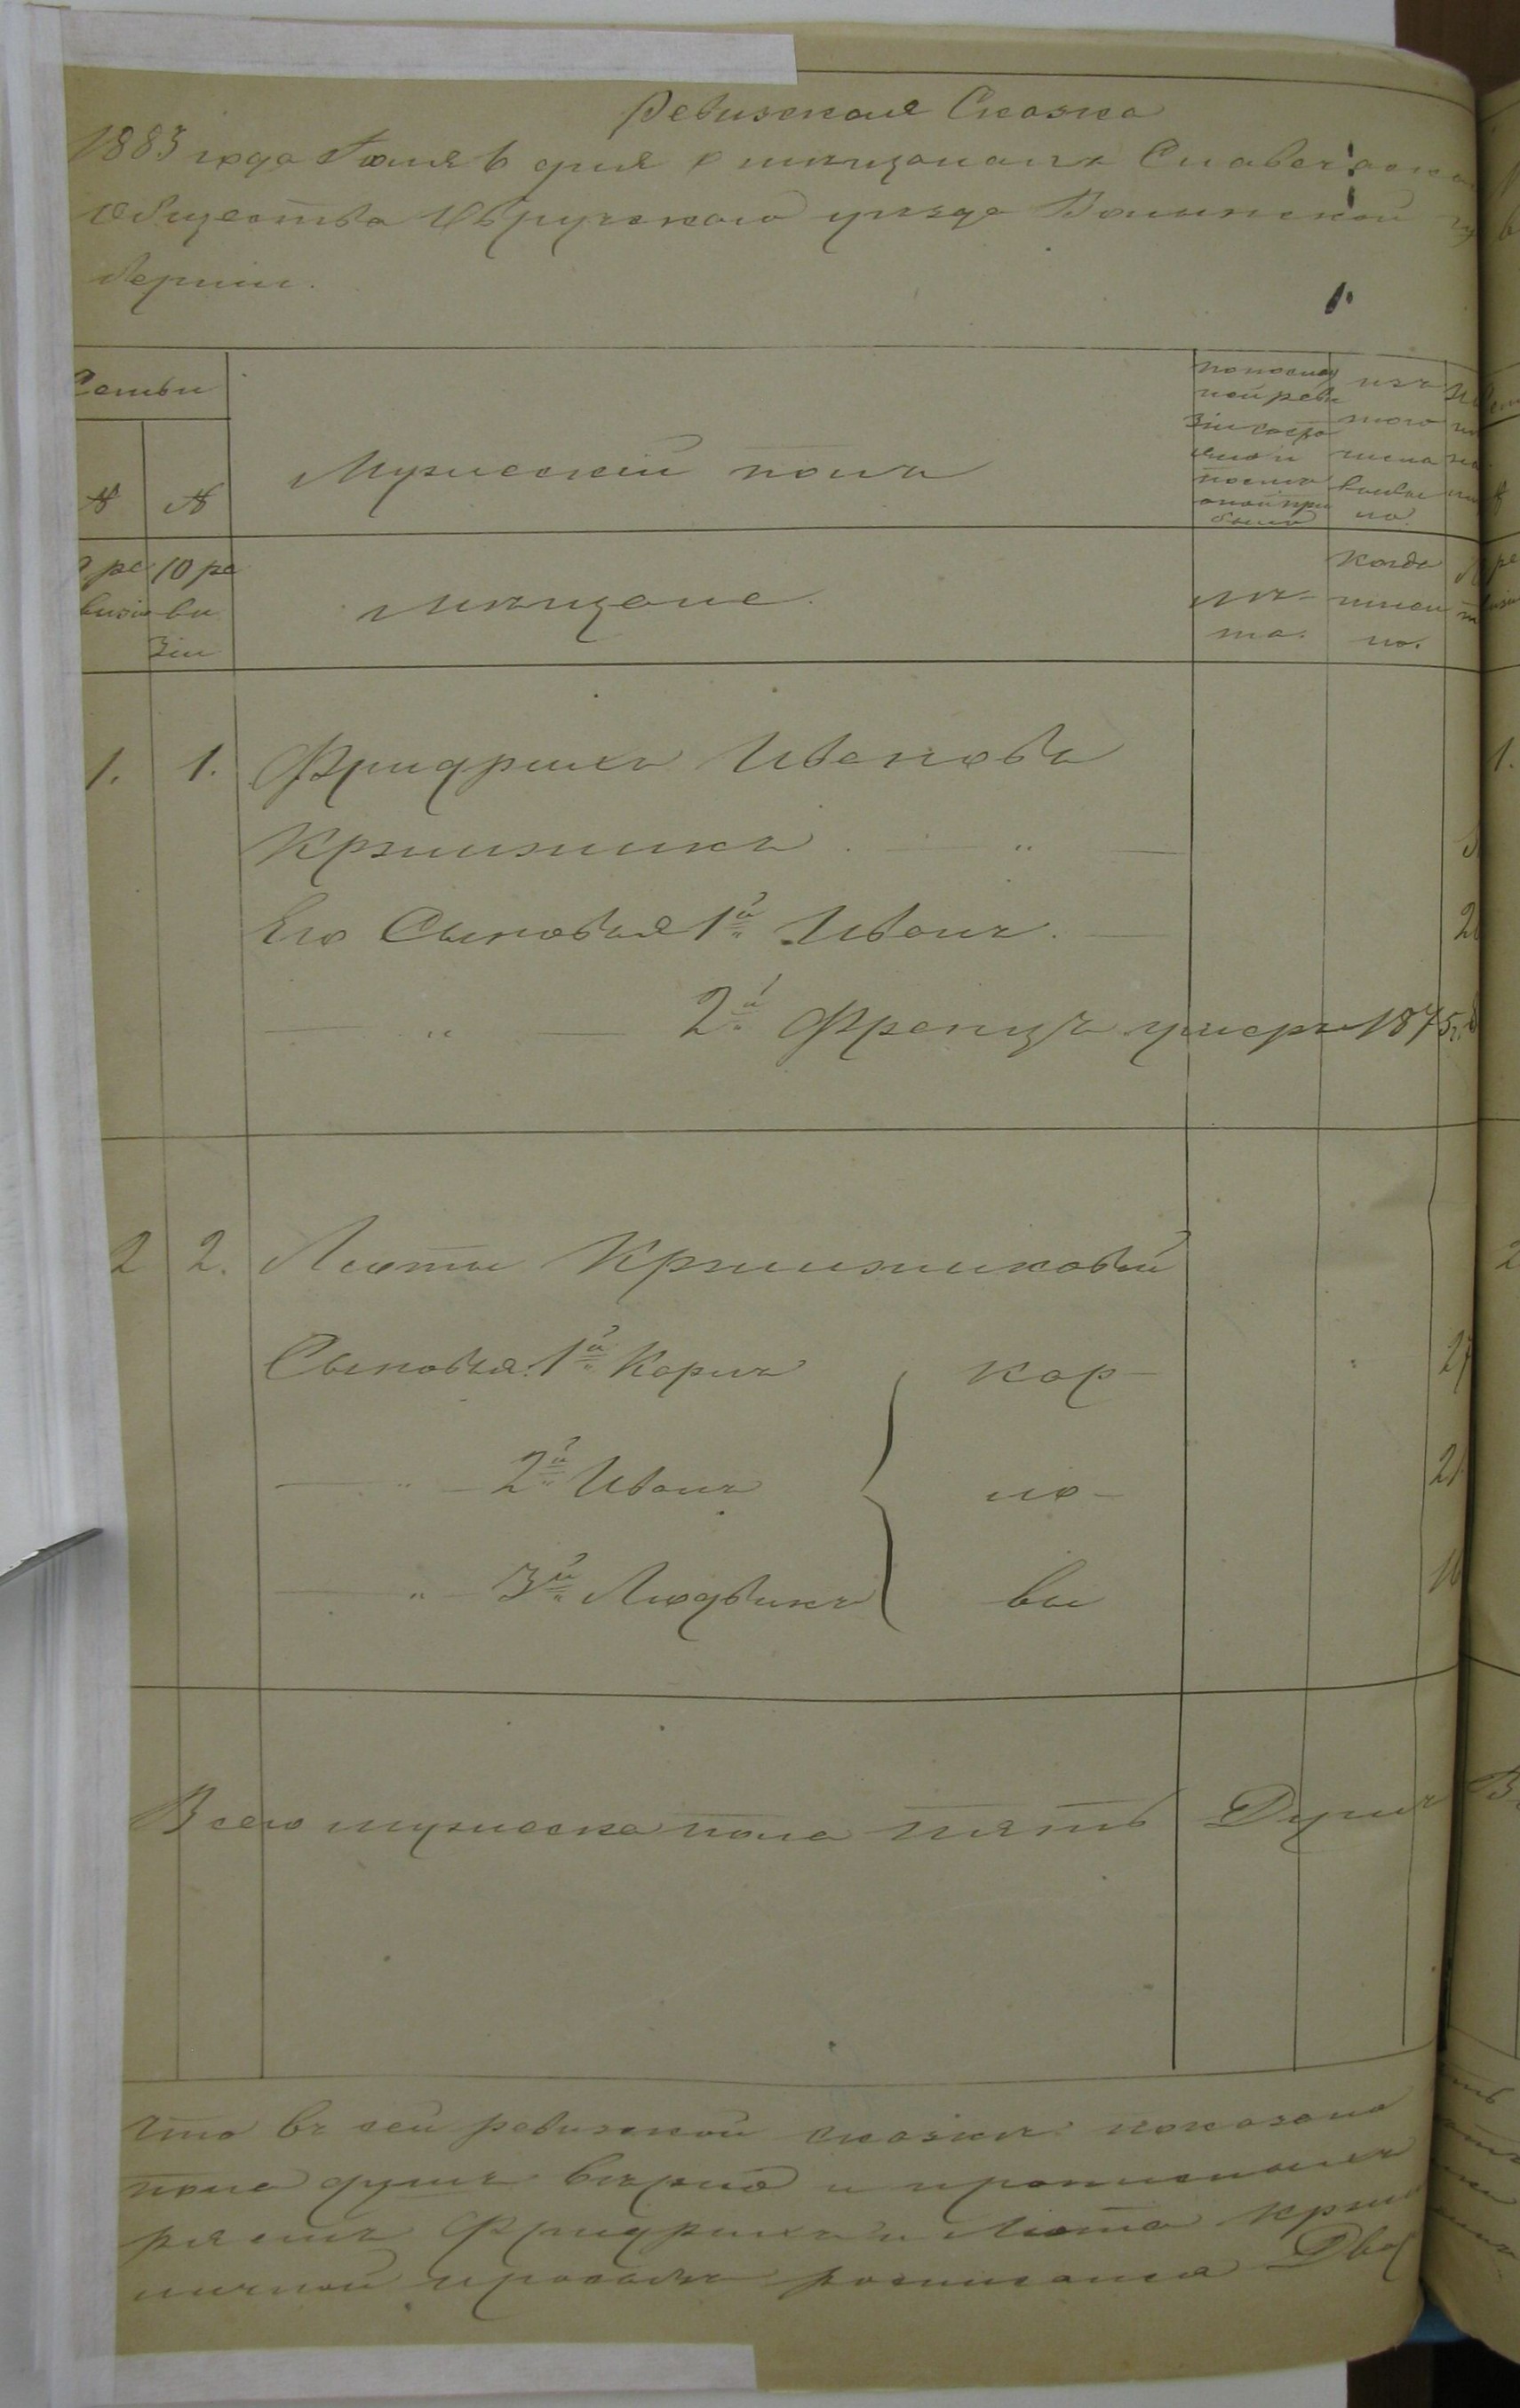 Ревизская Сказка
1883 года Юля 6 дня о мещанахъ Словечанско
Общества Овручскаго уезда Волынской гу
берніи.
1.
Семьи
Мужескій полъ
по послед
ней реви
зіи состо
яло и
после
оной при
было
изъ
того
числа
выбы
ло
№ №
9 ре 10 ре
визіи ви
зіи
Мещане.
ле-
та.
когда
имен
но.
1. 1. Фридрихъ Ивановъ
Кршижикъ . — " —
Его Сыновья 1й Иванъ . —
— " — 2й Францъ умеръ 1875г. в
2 2. Люты Кршижиковый
Сыновья. 1й Карлъ кар- 27
— " — 2й Иванъ ло- 21
— " — 3й Людвикъ вы
Всего мужеска пола пять Душъ
что въ сей ревизской сказке показано
пола душъ верно и прописныхъ
Фридрихъ и Люта Крши
личной просьбе росписался